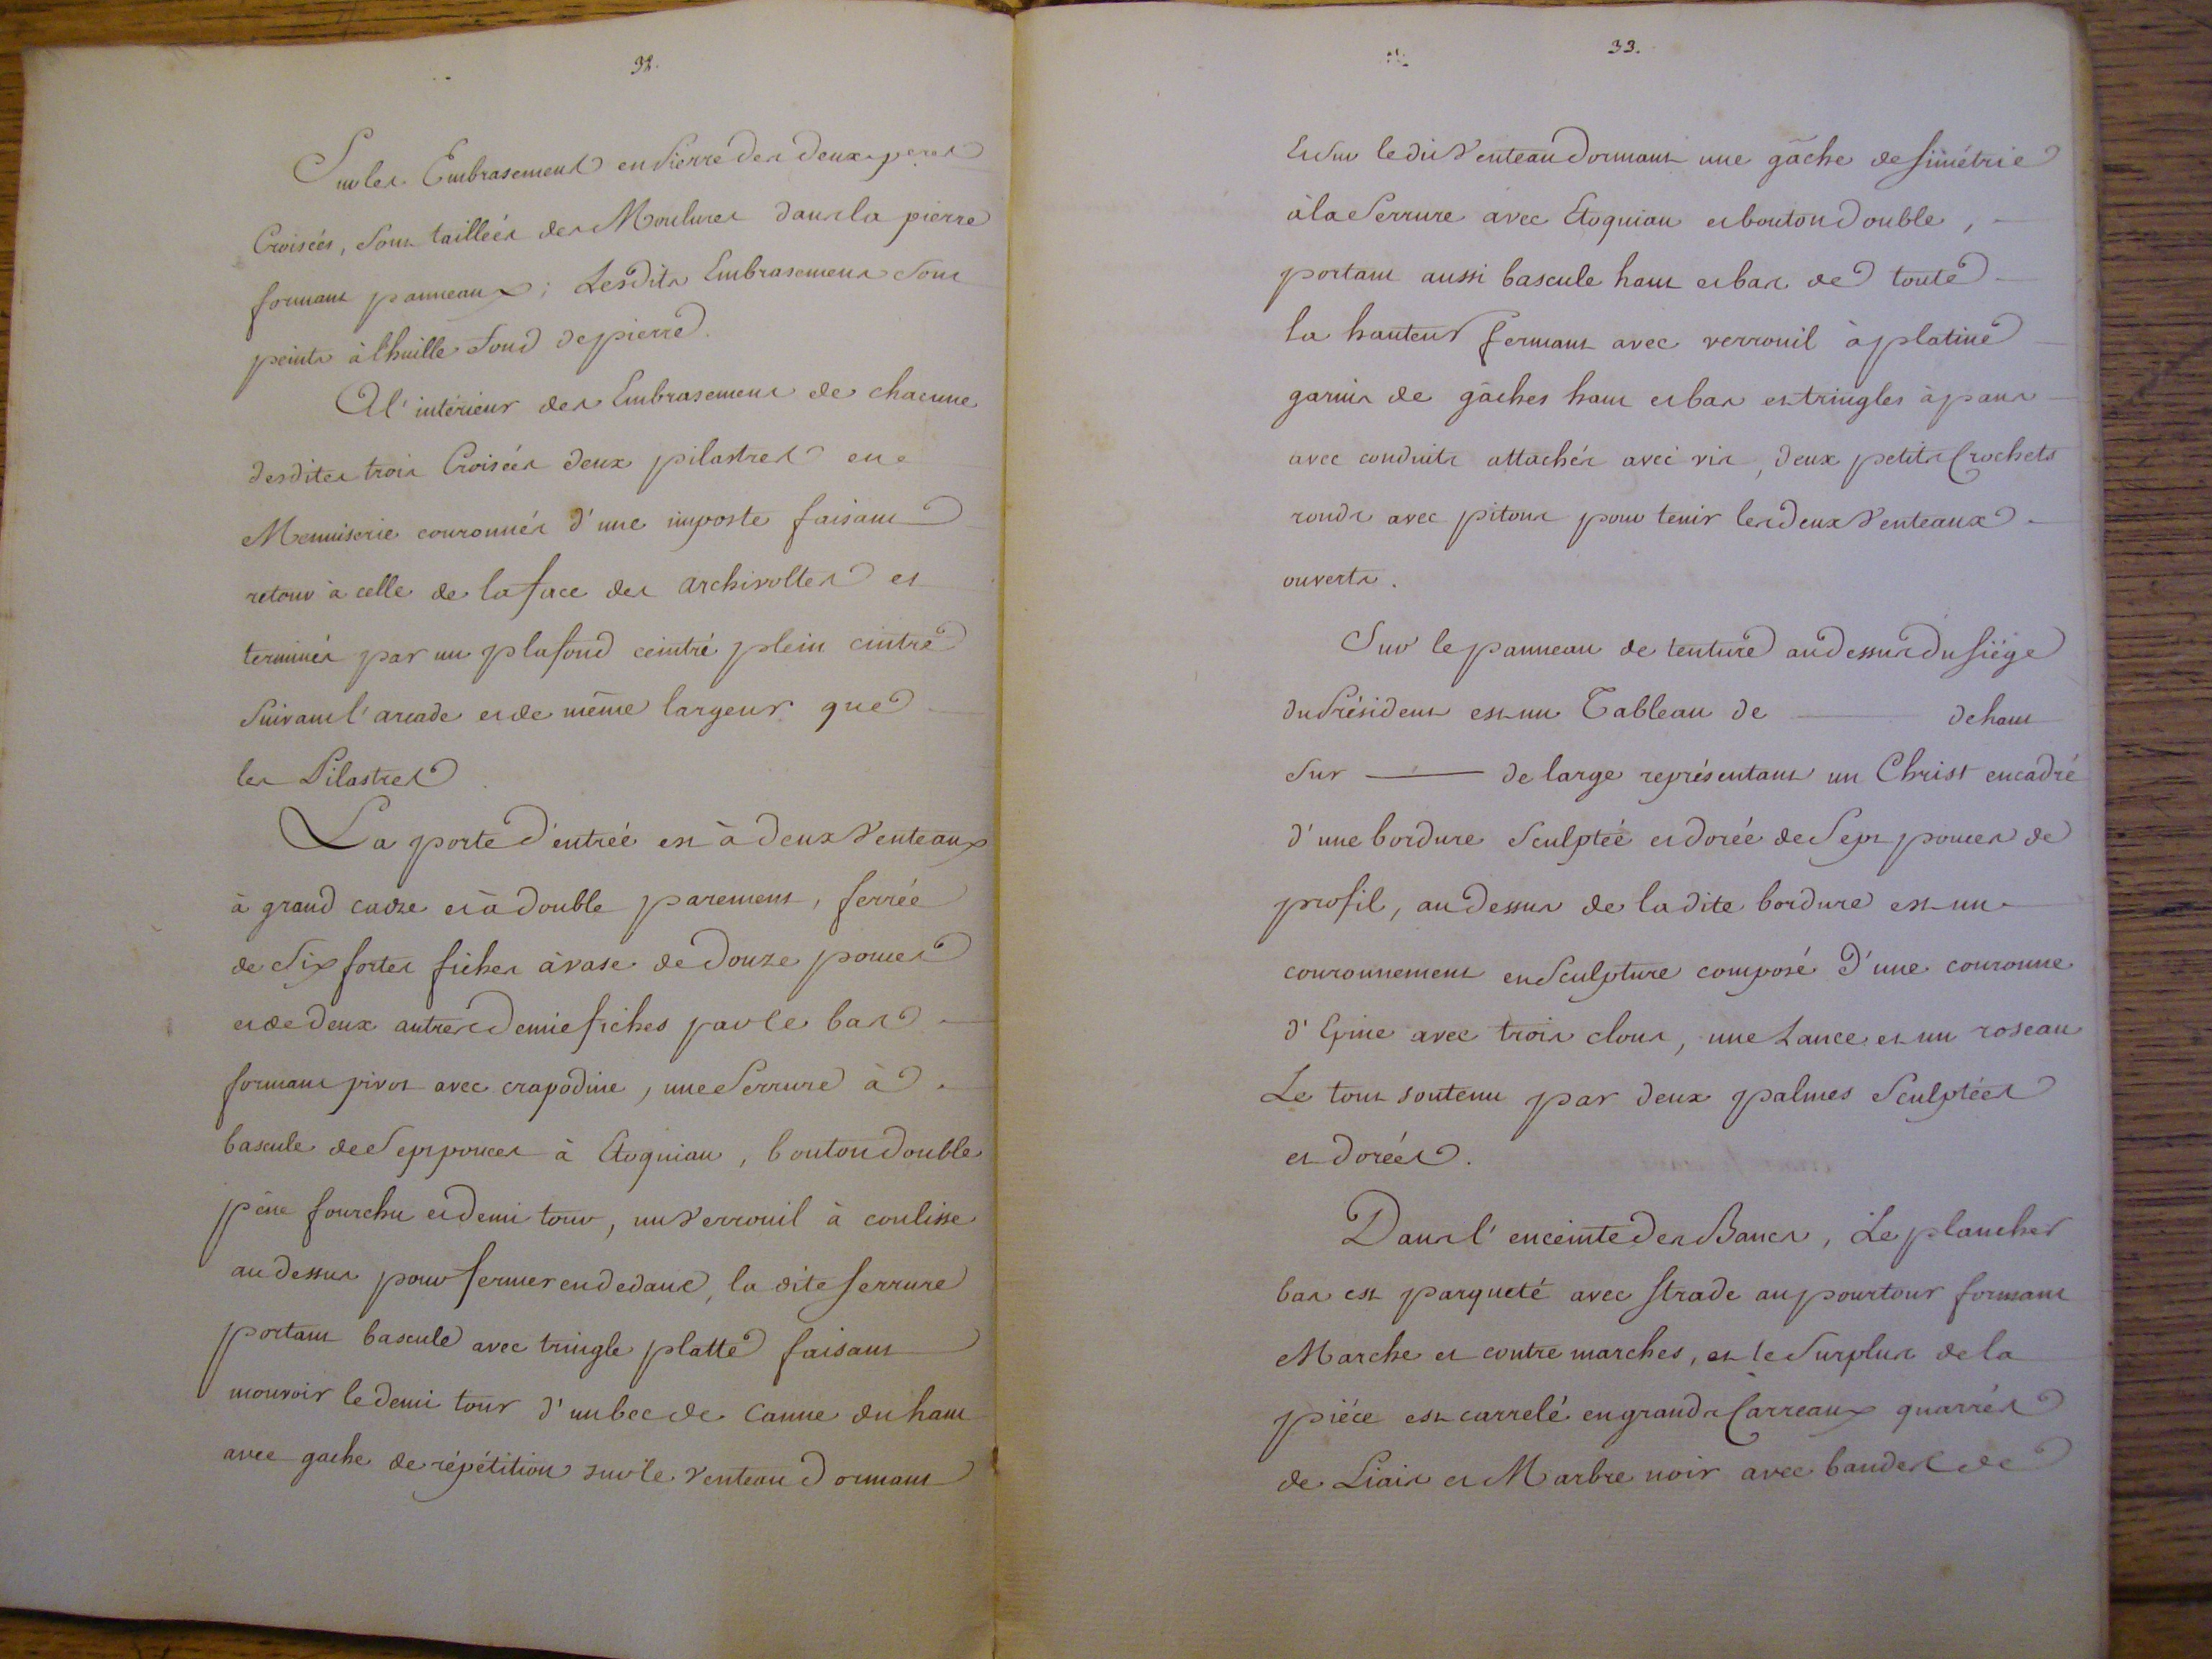 32.
Sur les Embrasement en Pierre des deux
Croisées, sont taillées des Moulures dans la pierre
formant panneaux ; Lesdits Embrasemens sont
peints à l'huille fond de pierre.
A l'intérieur des Embrasemens de chacune
desdites trois Croisées deux pilastres en
Menuiserie couronnés d'une imposte faisant
retour à celle de la face des archivoltes et
terminés par un plafond ceintré plein cintre
Suivant l'arcade et de même largeur que
les Pilastres
La porte d'entrée est à deux Venteaux
à grand cadre et à double parement, ferrée
de Six fortes fiches à vase de Douze pouces
et de deux autres demie fiches par le bas
formant pivot avec crapodine, une Serrure à
bascule de Sept pouces à Etoquiau, bouton double
pêne fourchu et demi tour, un Verrouil à coulisse
au dessus pour fermer en dedans, la dite serrure
portant bascule avec tringle platte faisant
mouvoir le demi tour d'un bec de Canne du haut
avec gache de répétition sur le Venteau Dormant
33.
Et sur le dit Venteau Dormant une gâche de simétrie
à la Serrure avec Etoquiau et bouton Double,
portant aussi bascule haut et bas de toute
la hauteur fermant avec verrouil à platine
garnis de gâches haut et bas et tringles à pans
avec conduits attachés avec vis, deux petits Crochets
ronds avec pitons pour tenir les deux Venteaux
ouverts.
Sur le panneau de tenture au dessus du siége
du Président est un Tableau de ——— de haut
Sur ——— de large représentant un Christ encadré
d'une bordure Sculptée et dorée de Sept pouces de
profil, au dessus de la dite bordure est un
couronnement en Sculpture composé d'une couronne
d'Epine avec trois clous, une Lance et un roseau
Le tout soutenu par deux palmes Sculptées
et dorées.
Dans l'enceinte des Bancs, Le plancher
bas est parqueté avec strade au pourtour formant
Marche et contre marches, et le Surplus de la
piéce est carrelé en grands Carreaux quarrés
de Liais et Marbre noir avec bandes de